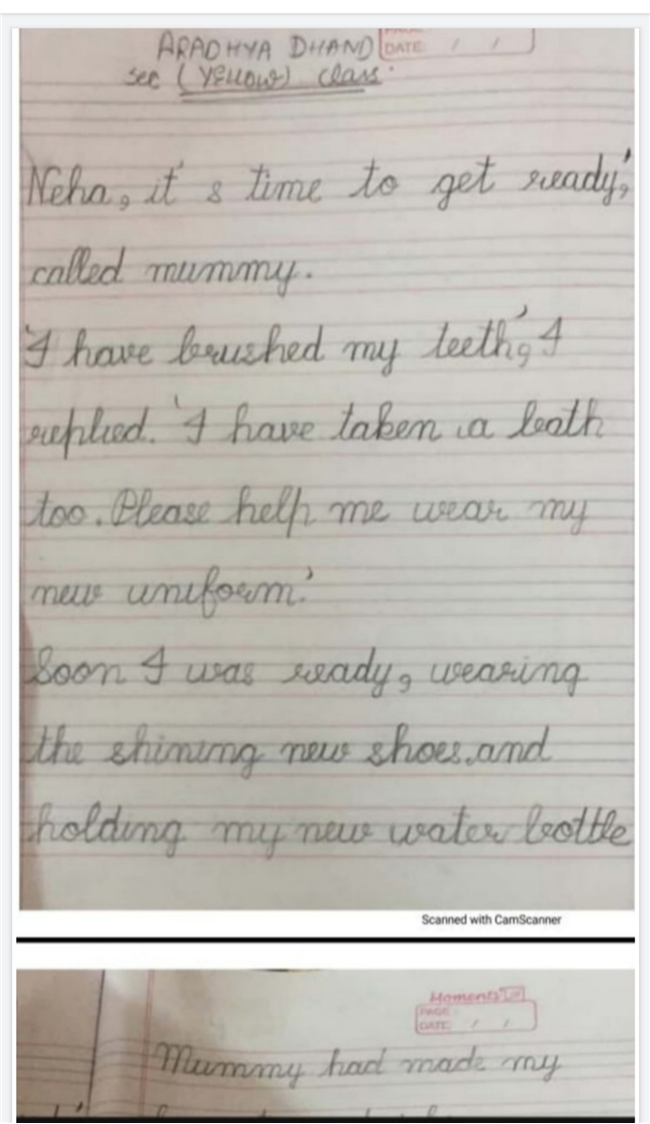 ARADHYA DHAND
DATE: / /
sec (Yellow) class.
Neha, it's time to get ready,'
called mummy.
'I have brushed my teeth,' I
replied. 'I have taken a bath
too. Please help me wear my
new uniform.'
Soon I was ready, wearing
the shining new shoes and
holding my new water bottle
Scanned with CamScanner
Moments
PAGE
DATE: / /
Mummy had made my